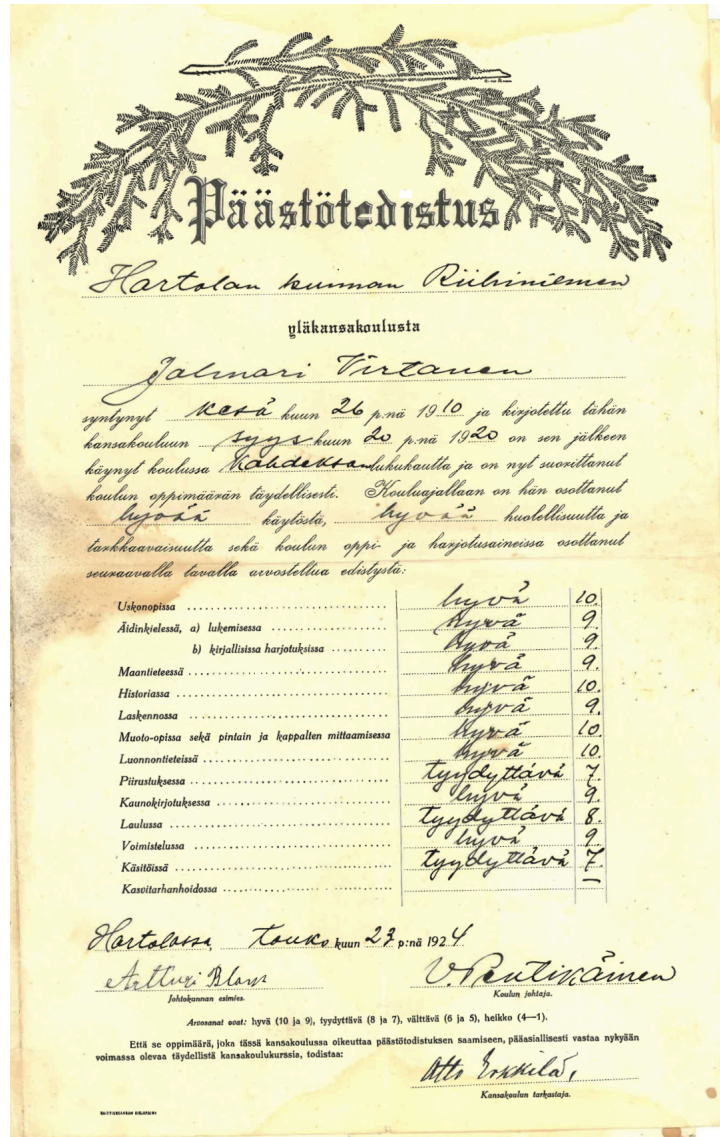 Päästötodistus
Hartolan kunnan Riihiniemen
yläkansakoulusta
Jalmari Virtanen
syntynyt kesä kuun 26 p:nä 1910 ja kirjotettu tähän
kansakouluun syys kuun 20 p:nä 1920 on sen jälkeen
käynyt koulussa kahdeksan lukukautta ja on nyt suorittanut
koulun oppimäärän täydellisesti. Kouluajallaan on hän osottanut
hyvää käytöstä, hyvää huolellisuutta ja
tarkkaavaisuutta sekä koulun oppi- ja harjotusaineissa osottanut
seuraavalla tavalla arvosteltua edistystä:
Uskonopissa hyvä 10.
Äidinkielessä, a) lukemisessa hyvä 9.
b) kirjallisissa harjotuksissa hyvä 9.
Maantieteessä hyvä 9.
Historiassa hyvä 10.
Laskennossa hyvä 9.
Muoto-opissa sekä pintain ja kappalten mittaamisessa hyvä 10.
Luonnontieteissä hyvä 10.
Piirustuksessa tyydyttävä 7.
Kaunokirjotuksessa hyvä 9.
Laulussa tyydyttävä 8.
Voimistelussa hyvä 9.
Käsitöissä tyydyttävä 7.
Kasvitarhanhoidossa —
Hartolassa, Touko kuun 23 p:nä 1924
Artturi V. Pentikäinen
Johtokunnan esimies. Koulun johtaja.
Arvosanat ovat: hyvä (10 ja 9), tyydyttävä (8 ja 7), välttävä (6 ja 5), heikko (4—1).
Että se oppimäärä, joka tässä kansakoulussa oikeuttaa päästötodistuksen saamiseen, pääasiallisesti vastaa nykyään
voimassa olevaa täydellistä kansakoulukurssia, todistaa:
Otto Erkkilä,
Kansakoulun tarkastaja.